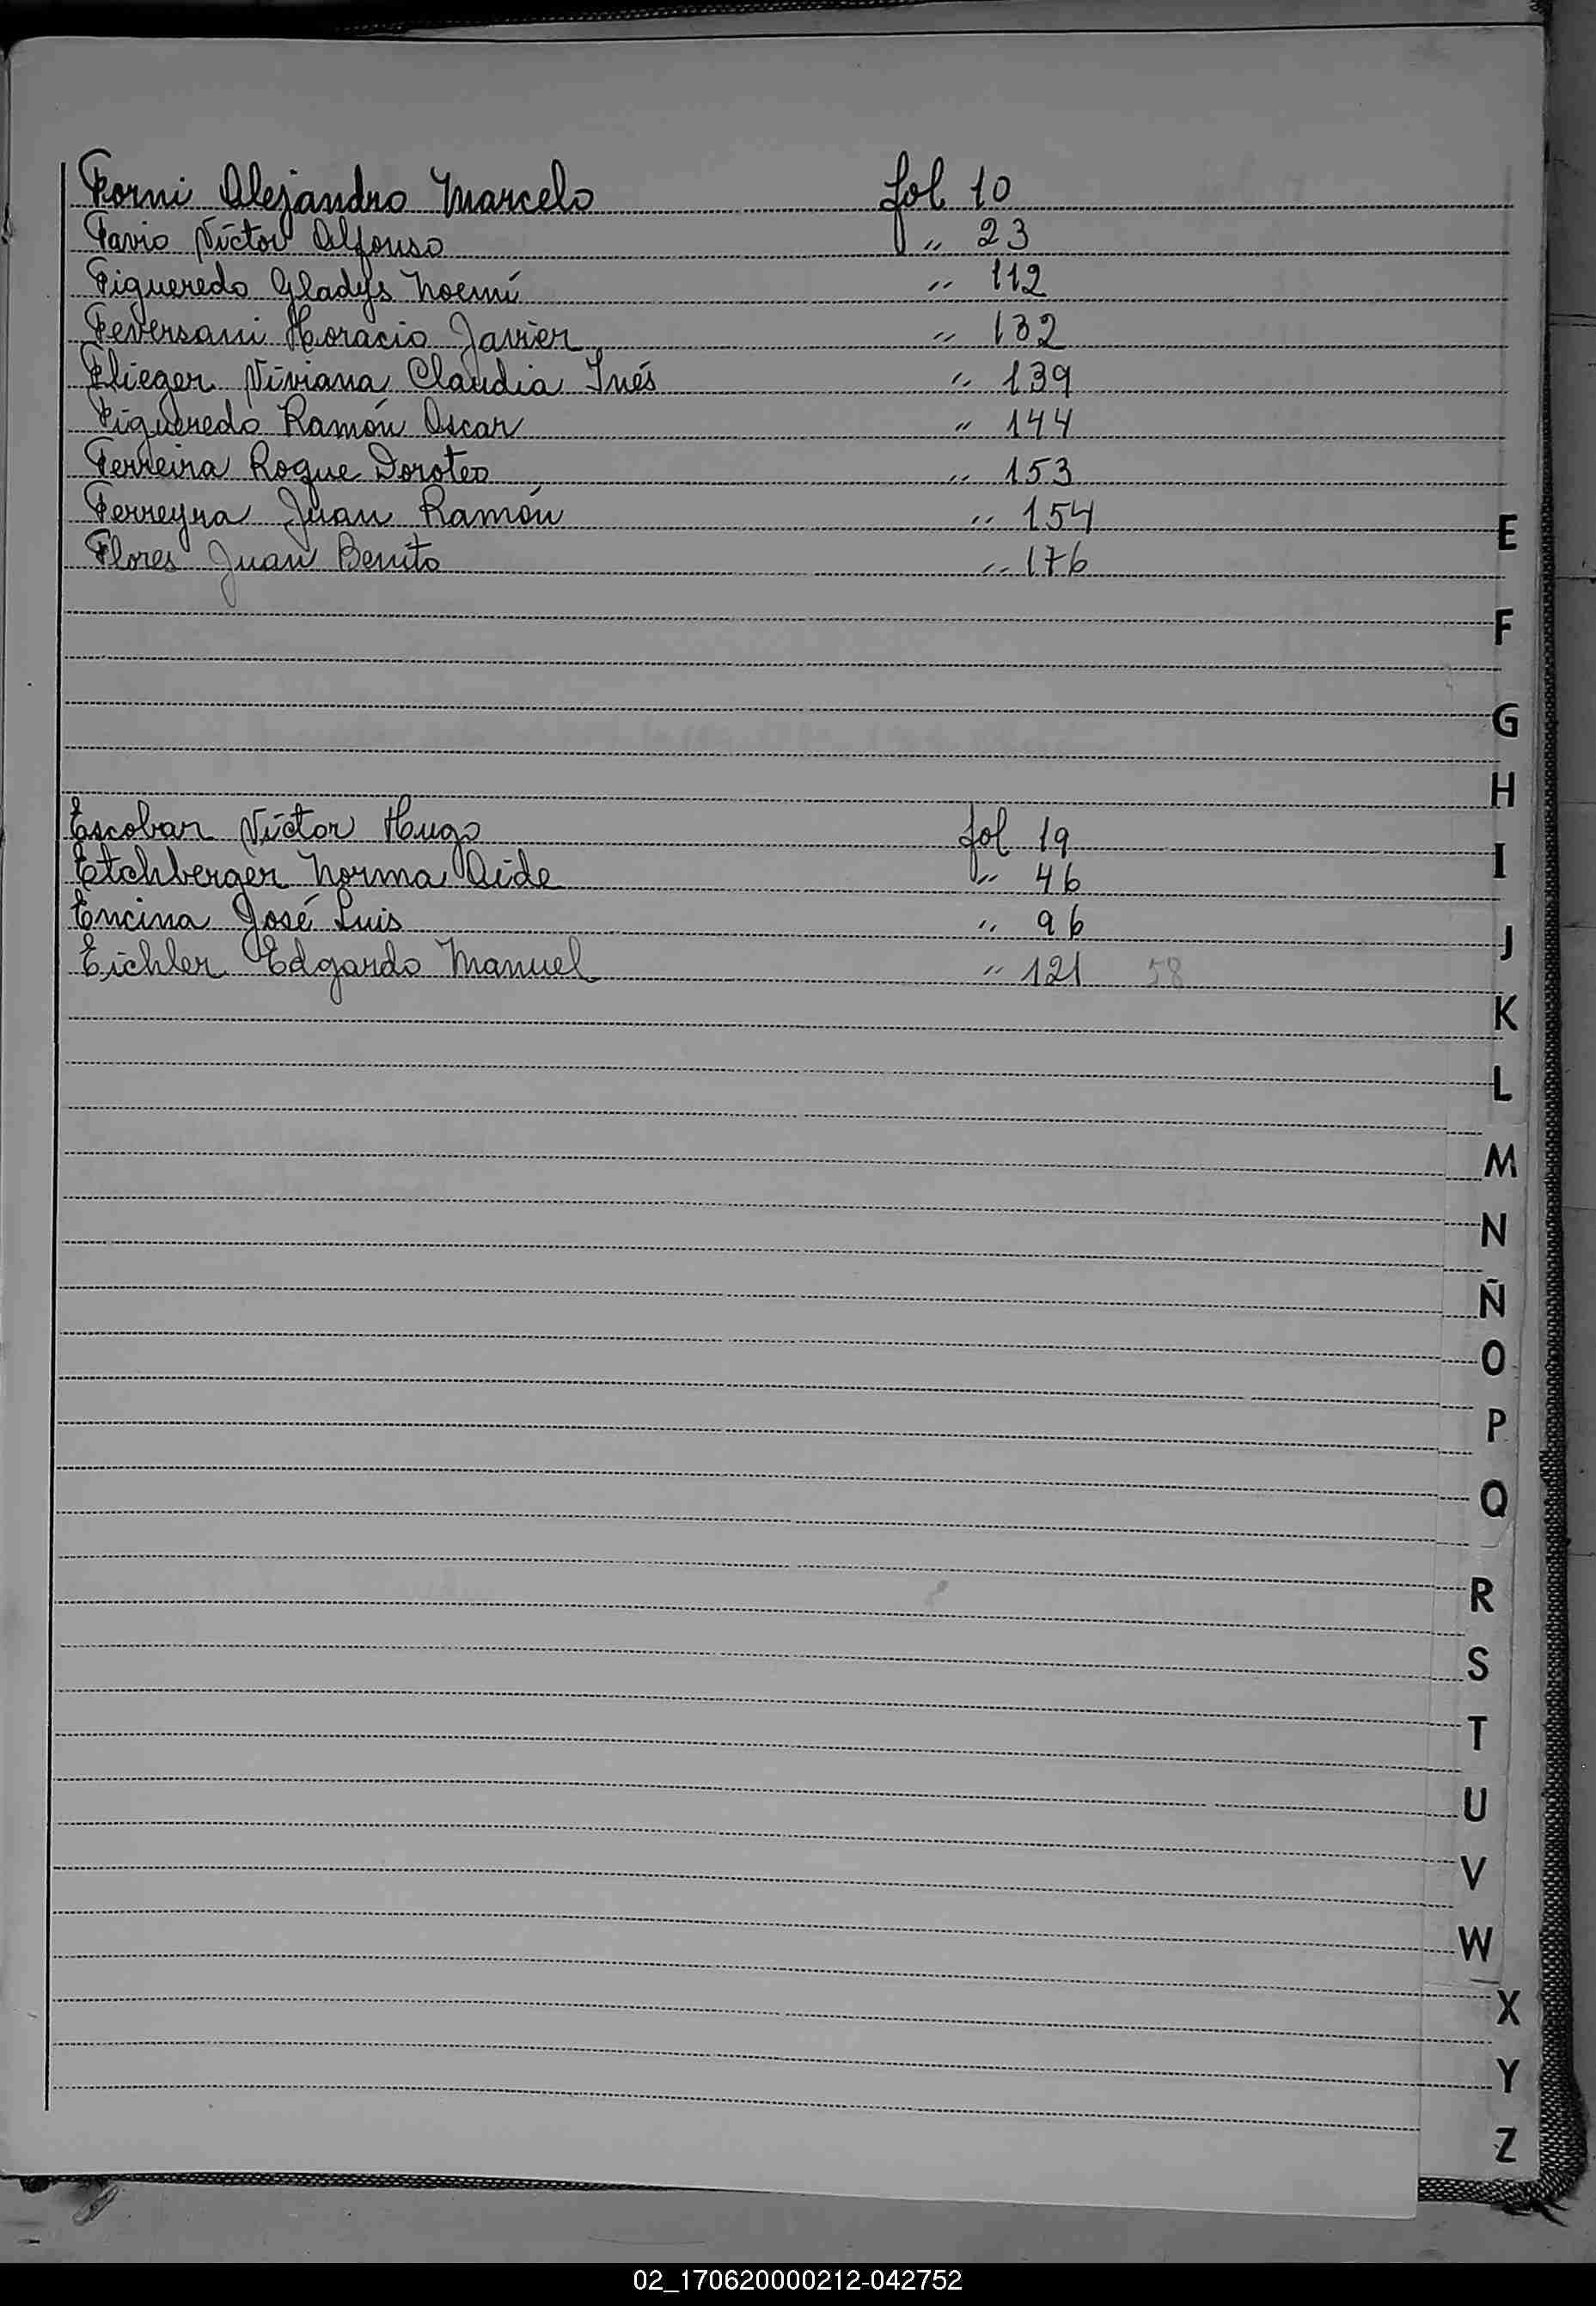 Forni Alejandro Marcelo fol 10
Favio Víctor Alfonso " 23
Figueredo Gladys Noemí " 112
Feversani Horacio Javier " 132
Flieger Viviana Claudia Inés " 139
Figueredo Ramón Oscar " 144
Ferreira Roque Doroteo " 153
Ferreyra Juan Ramón " 154
Flores Juan Benito " 176
Escobar Víctor Hugo fol 19
Etchberger Norma Aide " 46
Encina José Luis " 96
Eichler Edgardo Manuel " 121 58
E
F
G
H
I
J
K
L
M
N
Ñ
O
P
Q
R
S
T
U
V
W
X
Y
Z
02_170620000212-042752